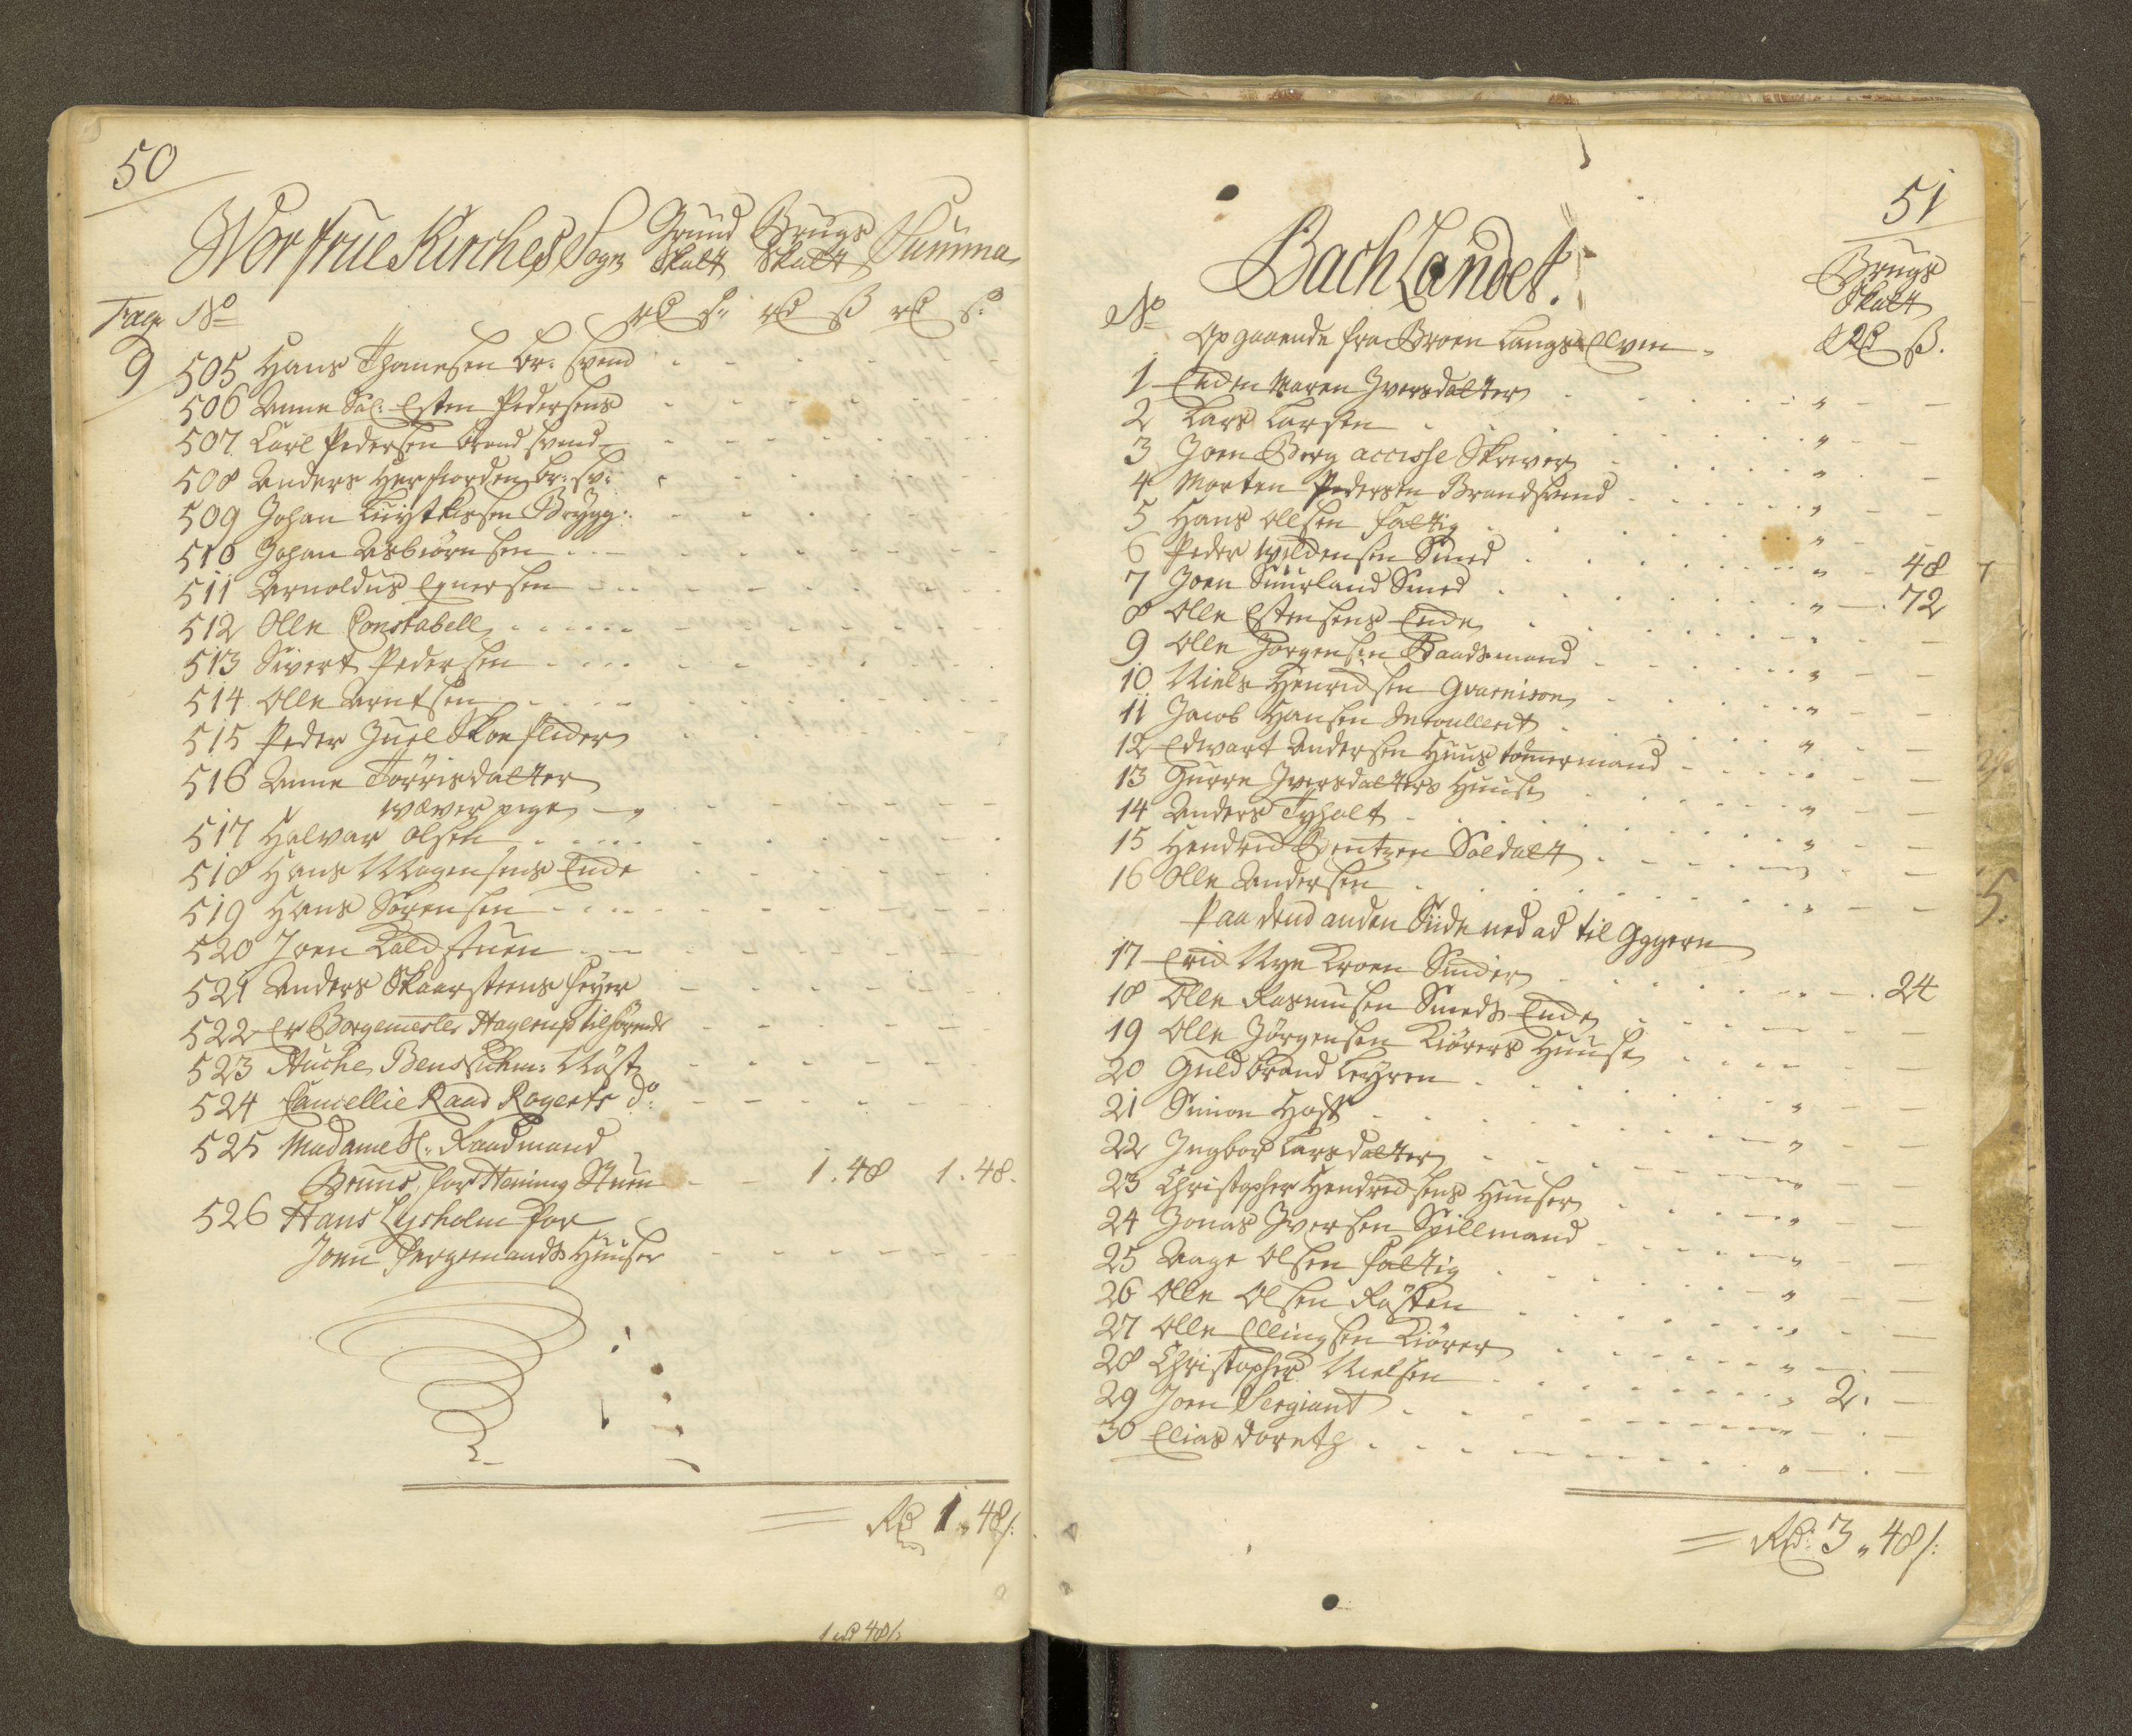 50
Wor frue Kirches Sogn Grund Skatt Brugs Skatt Summa
Tage No rd s. rd ß rd s.
9 505 Hans Thomesen br: svend
506 Anne Sal: Esten Pedersens
507 Carl Pedersen brand svend
508 Anders Herfiorden br: sv:
509 Johan Brygg:
510 Johan Asbiörnsen
511 Arnoldus Ejnersen
512 Olle Constabell
513 Sivert Pedersen
514 Olle Arntsen
515 Peder Juel Skoeflider
516 Anne Törrisdatter
wæver pige
517 Halvor Olsen
518 Hans Mogensens Enke
519 Hans Sörensen
520 Joen Kaldstuen
521 Anders Skaarsteens feyer
522 Er Borgemester Hagerup tilhörende
523 Niöst
524 Cancellie Raad Rogerts do:
525 Madame Sl. Raadmand
Bruuns for Hening Stuen 1. 48 1. 48.
526 Hans Lysholm for
Joen fergemands Huuser
Rd 1 „ 48 /:
1 rd 48 /:
51
Bach Landet.
Brugs Skatt
No
Op gaaende fra Broen langs Elven Rd ß.
1 Enken Maren Iversdatter
2 Lars Larsen
3 Joen Berg accisse Skriver
4 Morten Pedersen Brandsvend
5 Hans Ollsen fattig
6 Peder Smed 48
7 Joen Suurland Smed 72
8 Olle Estensens Enke
9 Olle Jörgensen Baadsmand
10 Niels Henricksen Gvarnison
11 Jacob Hansen
12 Edvart Andersen Huus tömmermand
13 Gurre Iversdatters Huuse
14 Anders Tyholt
15 Hendrick Bentzen Soldatt
16 Olle Andersen
Paa dend anden Siide ned ad til Iggern
17 Erick Nye Kroen 24
18 Olle Rasmusen Smeds Enke
19 Olle Jörgensen Kiörers Huuse
20 Guldbrand Leyren
21 Simon Hoff
22 Ingbor Larsdatter
23 Christopher Hendricksens Huuser
24 Jonas Iversen Spillmand
25 Aage Olsen fattig
26 Olle Olsen Rösten
27 Olle Ellingsen Kiörer
28 Christopher Nielsen 2.
29 Joen Sergiant
30 Elias Doreth
Rd: 3 „ 48 /:
5.